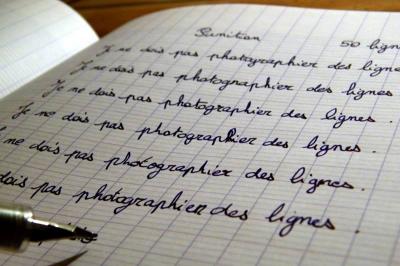 Punition 50 lign
Je ne dois pas photographier des ligne
Je ne dois pas photographier des lignes
Je ne dois pas photographier des lignes.
Je ne dois pas photographier des lignes.
ne dois pas photographier des lignes.
dois pas photographier des lignes.